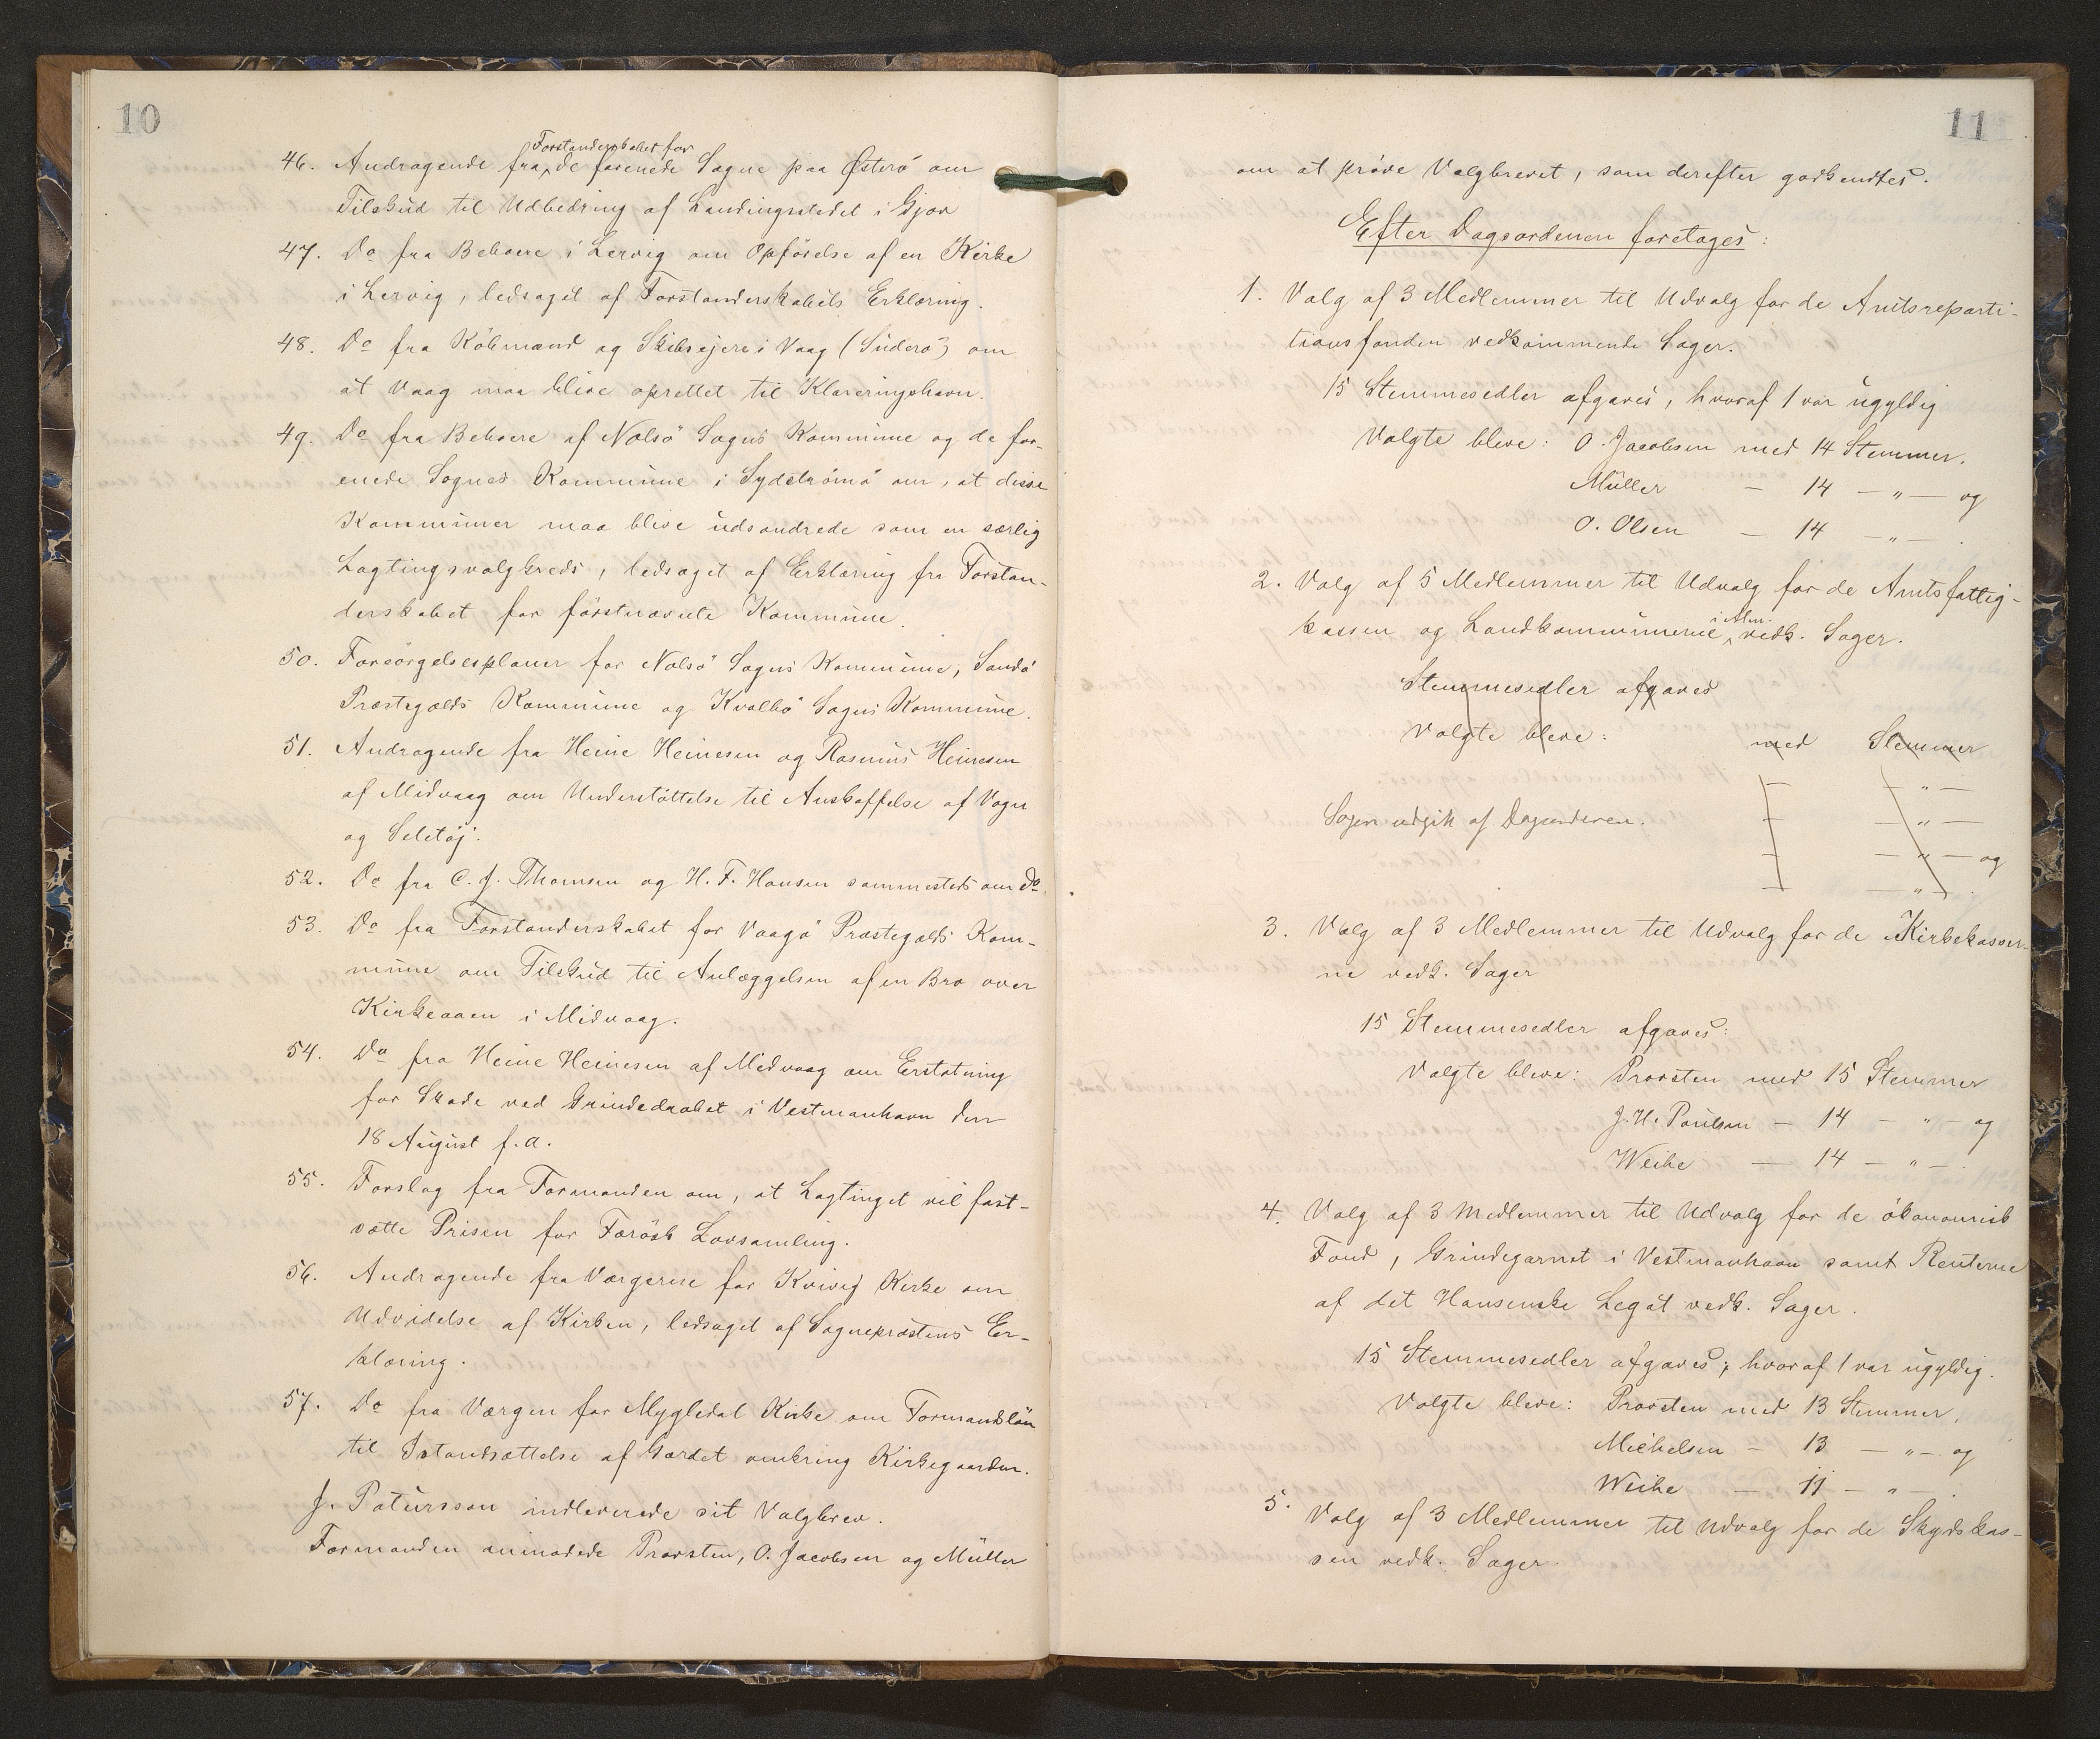 10
46. Andragende fra Forstanderskabet for de forenede Sogne paa Østerö om
Tilskud til Udbedring af Landingsstedet i Gjov
47. Do fra Beboere i Lervig om Opförelse af en Kirke
i Lervig, ledsaget af Forstanderskabets Erklæring.
48. Do fra Köbmænd og Skibsejere i Vaag (Suderö) om
at Vaag maa blive oprettet til Klareringshavn.
49. Do fra Beboere af Nolsö Sogns Kommune og de for-
enede Sognes Kommune i Sydströmö om, at disse
Kommuner maa blive udsondrede som en særlig
Lagtingsvalgkreds, ledsaget af Erklæring fra Forstan-
derskabet for förstnævnte Kommune.
50. Forsörgelsesplaner for Nolsö Sogns Kommune, Sandö
Præstegælds Kommune og Kvalbö Sogns Kommune.
51. Andragende fra Heine Heinesen og Rasmus Heinesen
af Midvaag om Understöttelse til Anskaffelse af Vogn
og Seletöj.
52. Do fra C. J. Thomsen og H. F. Hansen sammesteds om do.
53. Do fra Forstanderskabet for Vaagö Præstegælds Kom-
mune om Tilskud til Anlæggelsen af en Bro over
Kirkeaaen i Midvaag.
54. Do fra Heine Heinesen af Midvaag om Erstatning
for Skade ved Grindedrabet i Vestmanhavn den
18 August f. a.
55. Forslag fra Formanden om, at Lagtinget vil fast-
sætte Prisen for Færösk Lovsamling.
56. Andragende fra Værgerne for Kvivig Kirke om
Udvidelse af Kirken, ledsaget af Sognepræstens Er-
klæring.
57. Do fra Værgen for Mygledal Kirke om Formandslån
til Istandsættelse af Gærdet omkring Kirkegaarden.
J. Patursson indleverede sit Valgbrev.
Formanden anmodede Provsten, O. Jacobsen og Müller
11
om at pröve Valgbrevet, som derefter godkendtes.
Efter Dagsordenen foretages:
1. Valg af 3 Medlemmer til Udvalg for de Amtsreparti-
tionsfonden vedkommende Sager.
15 Stemmesedler afgaves, hvoraf 1 var ugyldig
Valgte bleve: O. Jacobsen med 14 Stemmer.
Müller — 14 — „ — og
O. Olsen — 14 — „ — .
2. Valg af 5 Medlemmer til Udvalg for de Amtsfattig-
kassen og Landkommunerne i Alm. vedk. Sager.
Stemmesedler afgaves
Valgte bleve: med Stemmer
— — „ —
Sagen udgik af Dagsordenen. — — „ —
— — „ — og
— — „ — .
3. Valg af 3 Medlemmer til Udvalg for de Kirkekasser-
ne vedk. Sager
15 Stemmesedler afgaves:
Valgte bleve: Provsten med 15 Stemmer
J. H. Poulsen — 14 — „ — og
Weihe — 14 — „ — .
4. Valg af 3 Medlemmer til Udvalg for de ökonomisk
Fond, Grindegarnet i Vestmanhavn samt Renterne
af det Hansenske Legat vedk. Sager.
15 Stemmesedler afgaves, hvoraf 1 var ugyldig.
Valgte bleve: Provsten med 13 Stemmer,
Michelsen — 13 — „ — og
Weihe — 11 — „ — .
5. Valg af 3 Medlemmer til Udvalg for de Skydskas-
sen vedk. Sager.